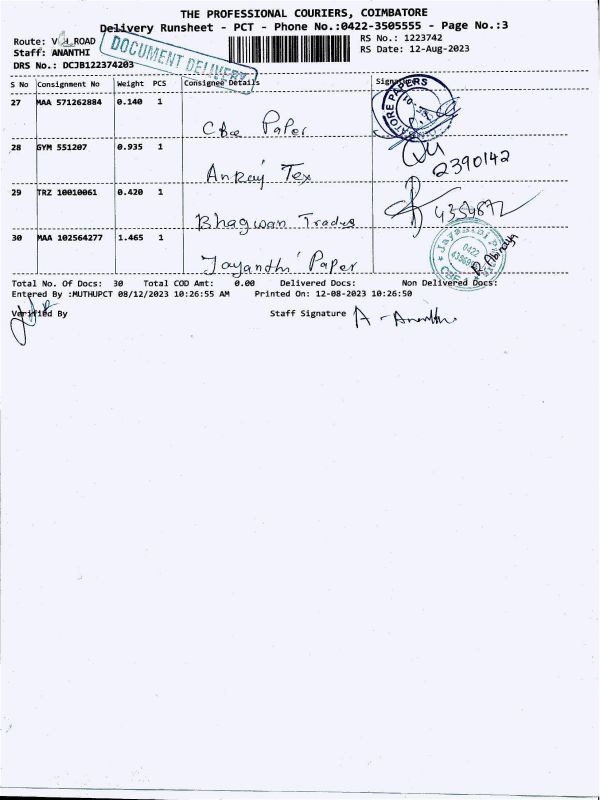 THE PROFESSIONAL COURIERS, COIMBATORE
Delivery Runsheet - PCT - Phone No.:0422-3505555 - Page No.:3
Route: V H ROAD
RS No.: 1223742
Staff: ANANTHI
RS Date: 12-Aug-2023
DOCUMENT DELIVERY
DRS No.: DCJB122374203
S No Consignment No Weight PCS Consignee Details Signature
27 MAA 571262884 0.140 1
Cbe Paper
28 GYM 551207 0.935 1
Anraj Tex 2390142
29 TRZ 10010061 0.420 1
Bhagwan Trades 4354872
30 MAA 102564277 1.465 1
Jayanthi Paper
0422
Total No. Of Docs: 30 Total COD Amt: 0.00 Delivered Docs: Non Delivered Docs:
Entered By :MUTHUPCT 08/12/2023 10:26:55 AM Printed On: 12-08-2023 10:26:50
Verified By Staff Signature A - Ananthi